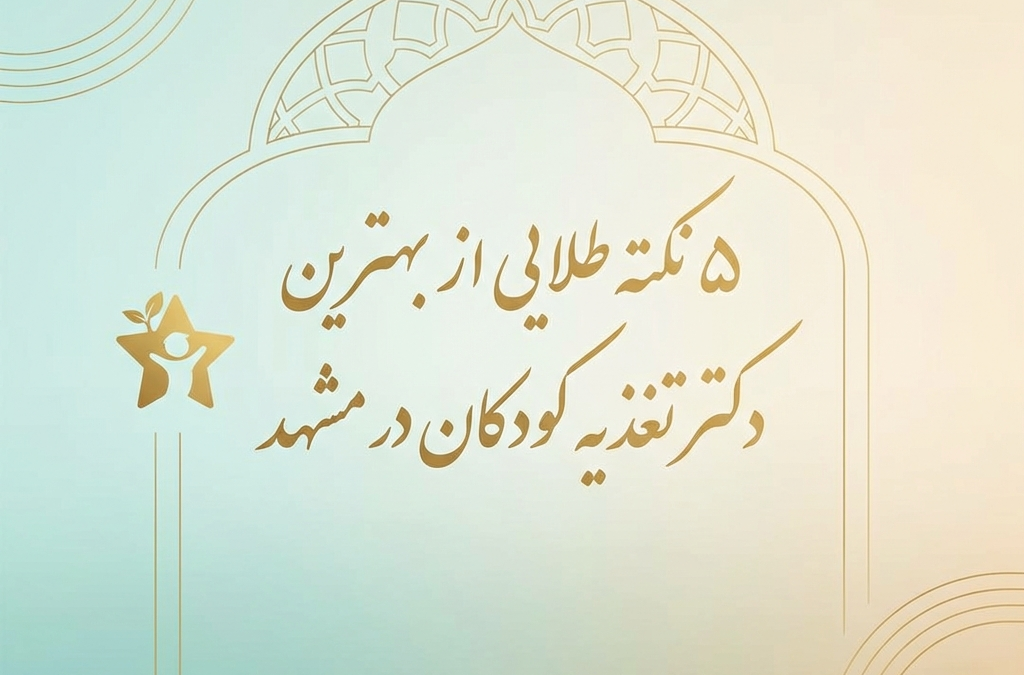 ۵ نکته طلایی از بهترین
دکتر تغذیه کودکان در مشهد